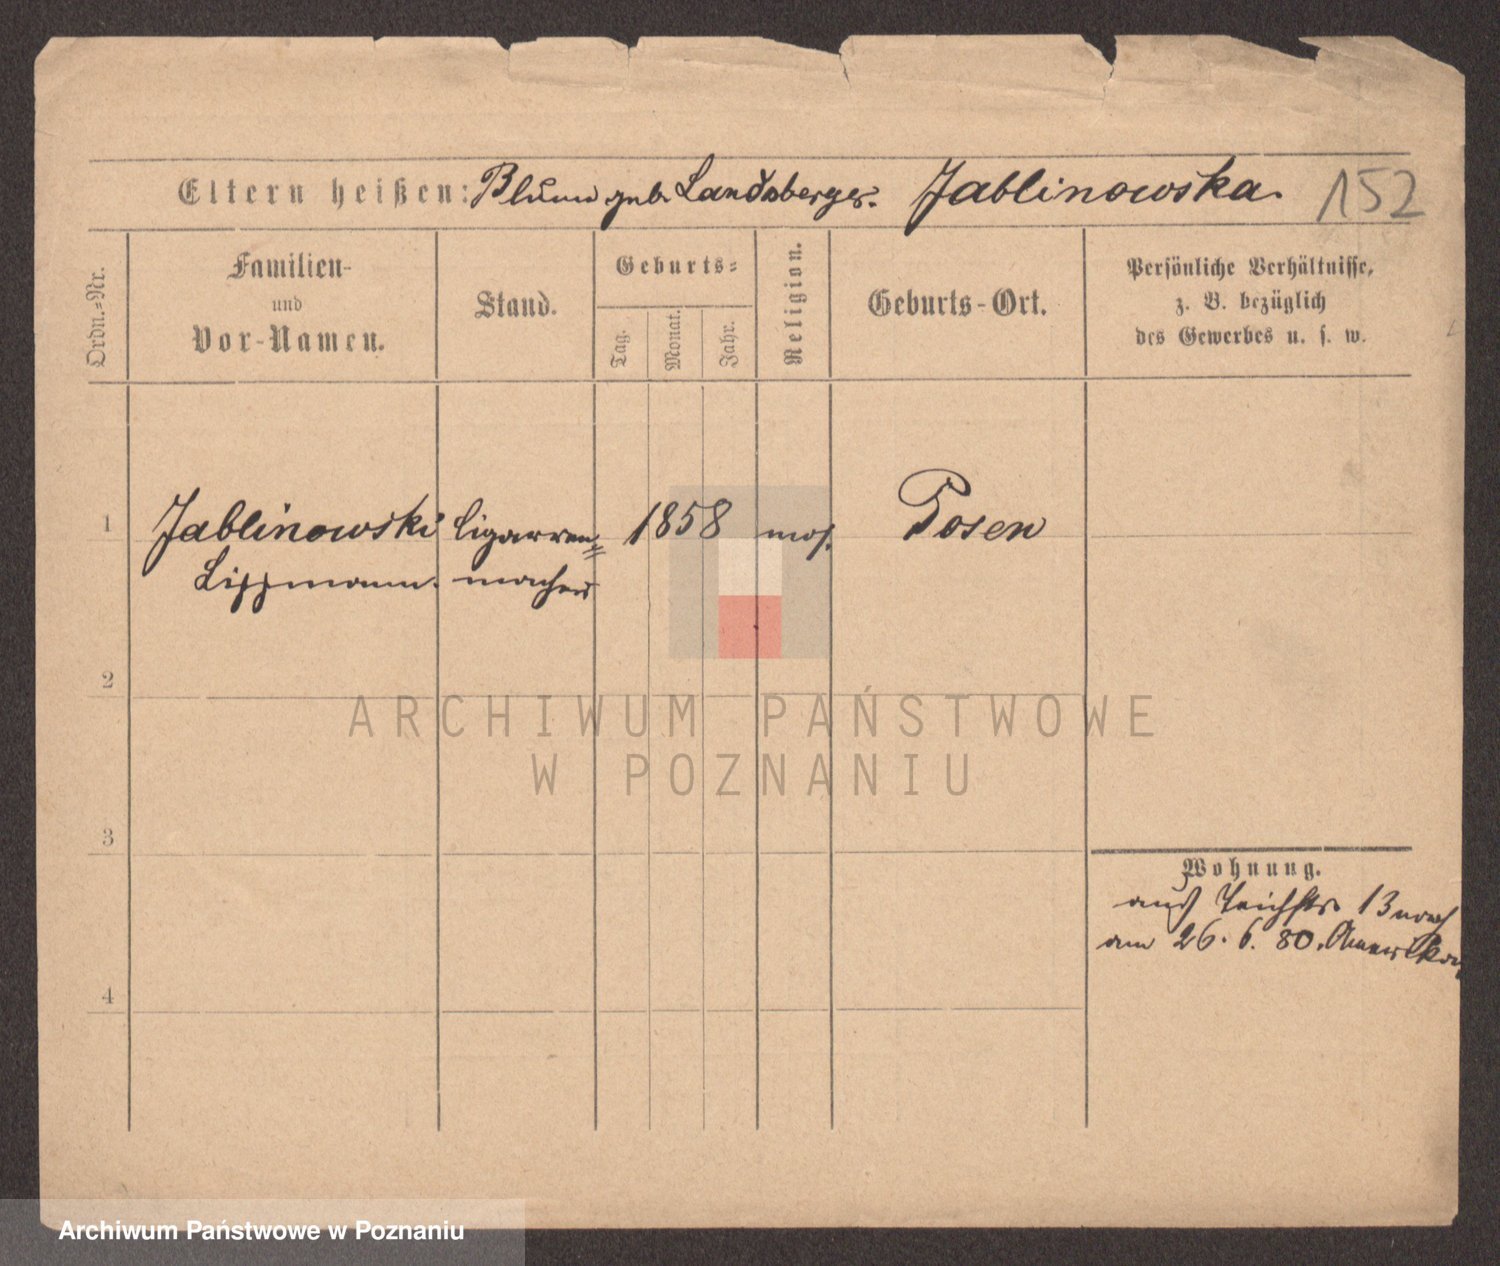 Eltern heißen: Blume geb. Landsberger. Jablinowska. 152
Ordn.=Nr.
Familien-
und
Vor-Namen.
Stand.
Geburts=
Tag.
Monat.
Jahr.
Religion.
Geburts-Ort.
Persönliche Verhältnisse,
z. B. bezüglich
des Gewerbes u. s. w.
1 Jablinowski Cigarren= 1858 mos. Posen
Lippmann. macher
2
3
4
Wohnung.
Teichstr 13 nach
am 26. 6. 80. Amerika
ARCHIWUM PAŃSTWOWE
W POZNANIU
Archiwum Państwowe w Poznaniu